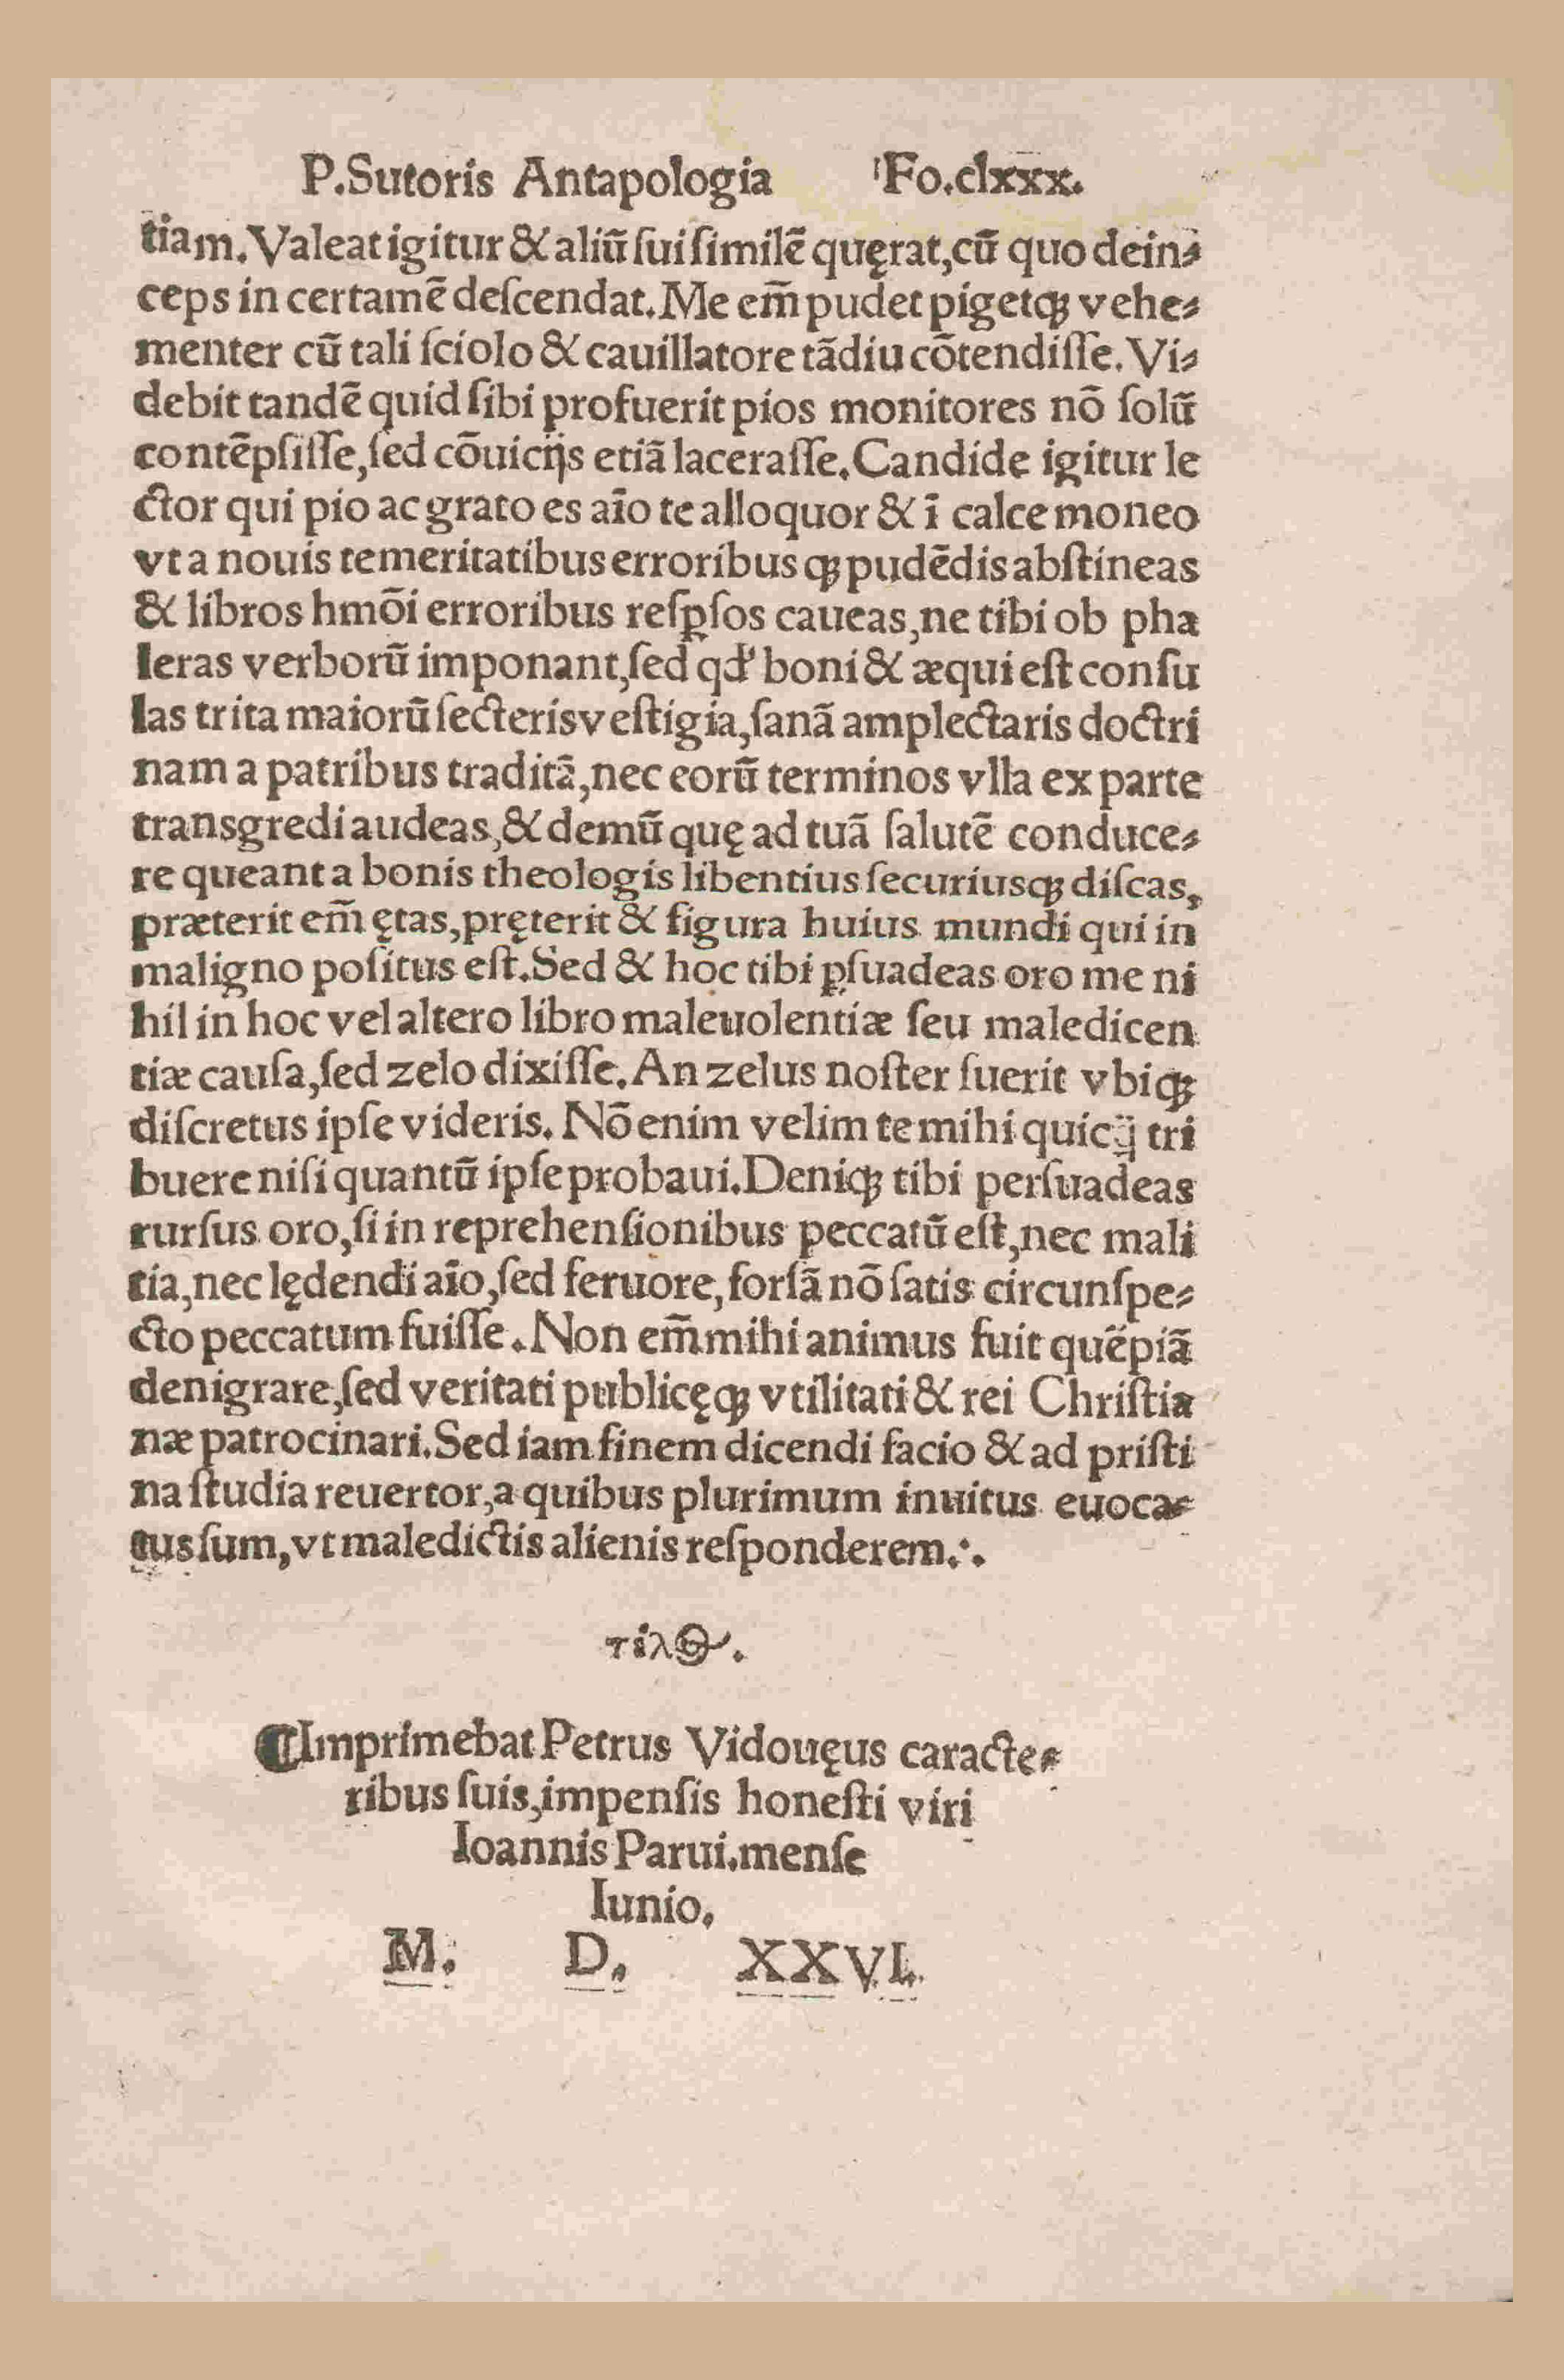 P.Sutoris Antapologia Fo.clxxx.
tiam. Valeat igitur & aliū ſui ſimilē quęrat, cū quo dein⸗
ceps in certamē deſcendat. Me em̄ pudet pigetqꝫ vehe⸗
menter cū tali ſciolo & cauillatore tādiu cōtendiſſe. Vi⸗
debit tandē quid ſibi profuerit pios monitores nō ſolū
contēpſiſſe, ſed cōuicijs etiā laceraſſe. Candide igitur le
ctor qui pio ac grato es aīo te alloquor & ī calce moneo
vt a nouis temeritatibus erroribusqꝫ pudēdis abſtineas
& libros hmōi erroribus reſꝑſos caueas, ne tibi ob pha
leras verborū imponant, ſed qd' boni & æqui eſt conſu
las trita maiorū ſecteris veſtigia, ſanā amplectaris doctri
nam a patribus traditā, nec eorū terminos vlla ex parte
transgredi audeas, & demū quę ad tuā ſalutē conduce⸗
re queant a bonis theologis libentius ſecuriusqꝫ diſcas,
præterit em̄ ętas, pręterit & figura huius mundi qui in
maligno poſitus eſt. Sed & hoc tibi ꝑſuadeas oro me ni
hil in hoc vel altero libro maleuolentiæ ſeu maledicen
tiæ cauſa, ſed zelo dixiſſe. An zelus noſter fuerit vbiqꝫ
diſcretus ipſe videris. Nō enim velim te mihi quicq̄ tri
buere niſi quantū ipſe probaui. Deniqꝫ tibi perſuadeas
rurſus oro, ſi in reprehenſionibus peccatū eſt, nec mali
tia, nec lędendi aīo, ſed feruore, forſā nō ſatis circunſpe⸗
cto peccatum fuiſſe. Non em̄ mihi animus fuit quēpiā
denigrare, ſed veritati publicęqꝫ vtilitati & rei Chriſtia
næ patrocinari. Sed iam finem dicendi facio & ad priſti
na ſtudia reuertor, a quibus plurimum inuitus euoca⸗
tus ſum, vt maledictis alienis reſponderem.·.
¶Imprimebat Petrus Vidouęus caracte⸗
ribus ſuis, impenſis honeſti viri
Ioannis Parui. menſe
Iunio.
M. D. XXVI.